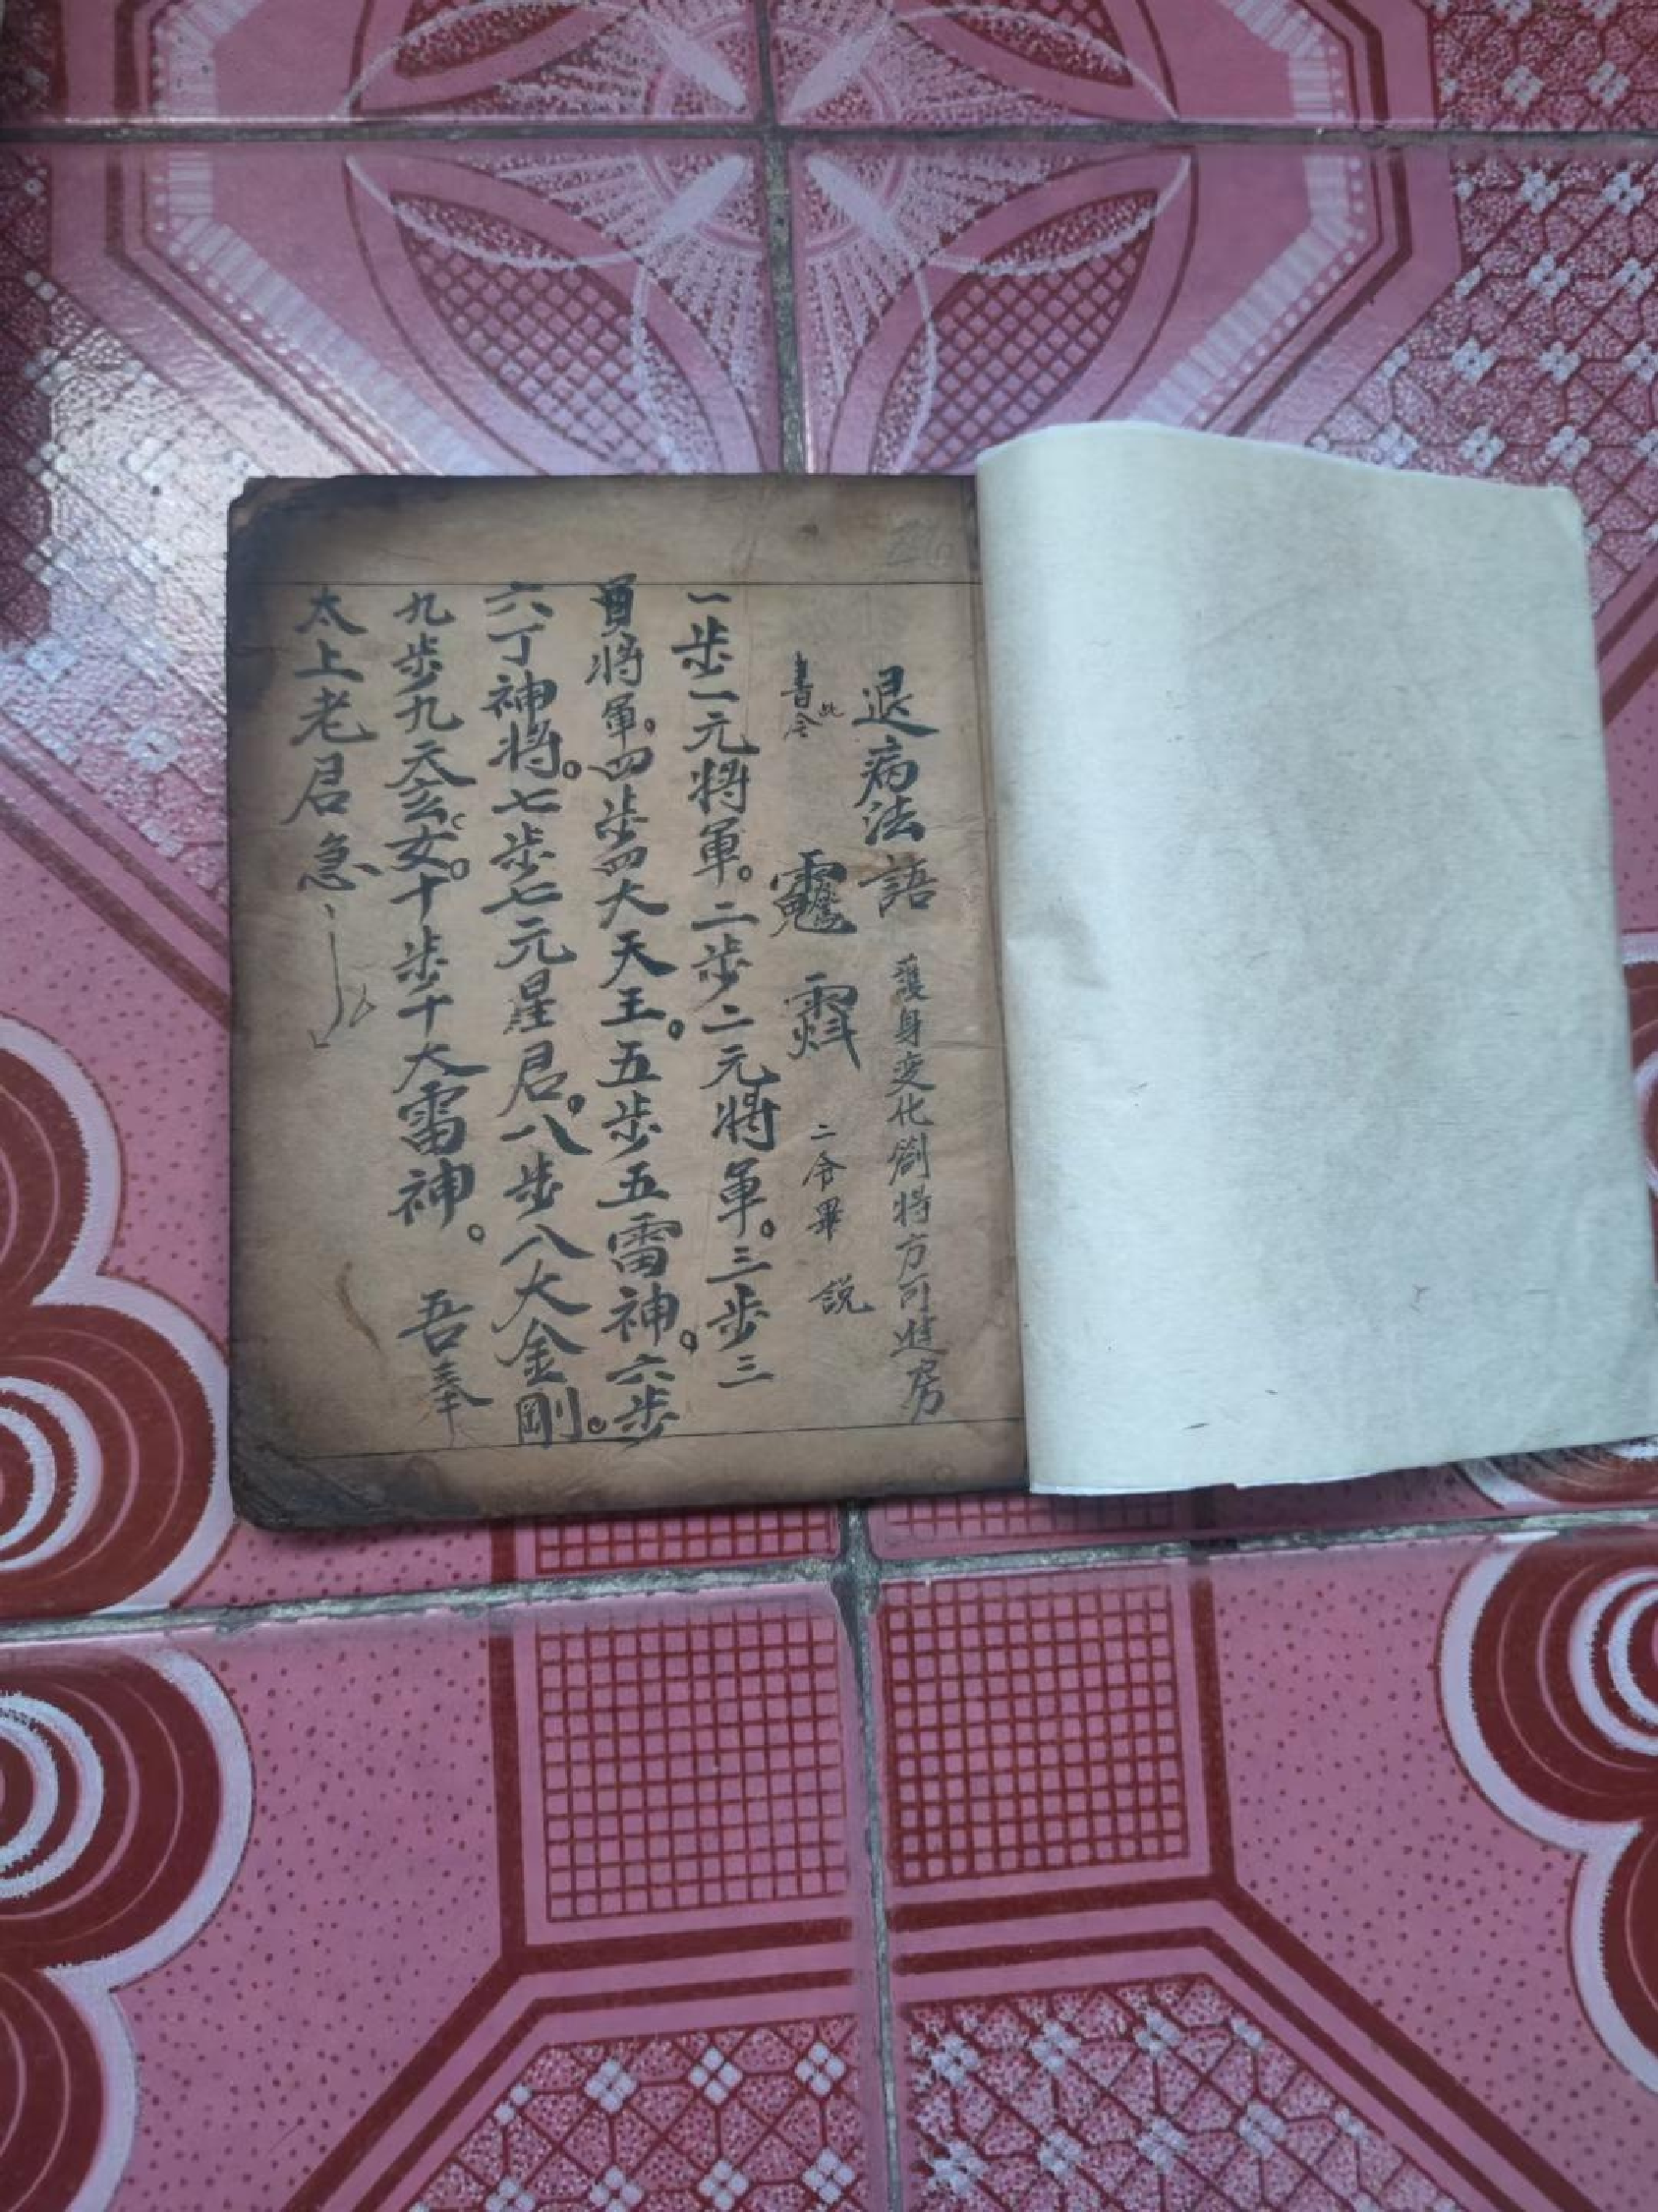 退病法語 護身変化劄將方可進房
書此令 二令畢 説
一步一元將軍。二步二元將軍。三步三
員將軍。四步四大天王。五步五雷神。六步
六丁神將。七步七元星君。八步八大金剛。
九步九天玄女。十步十大雷神。 吾奉
太上老君急